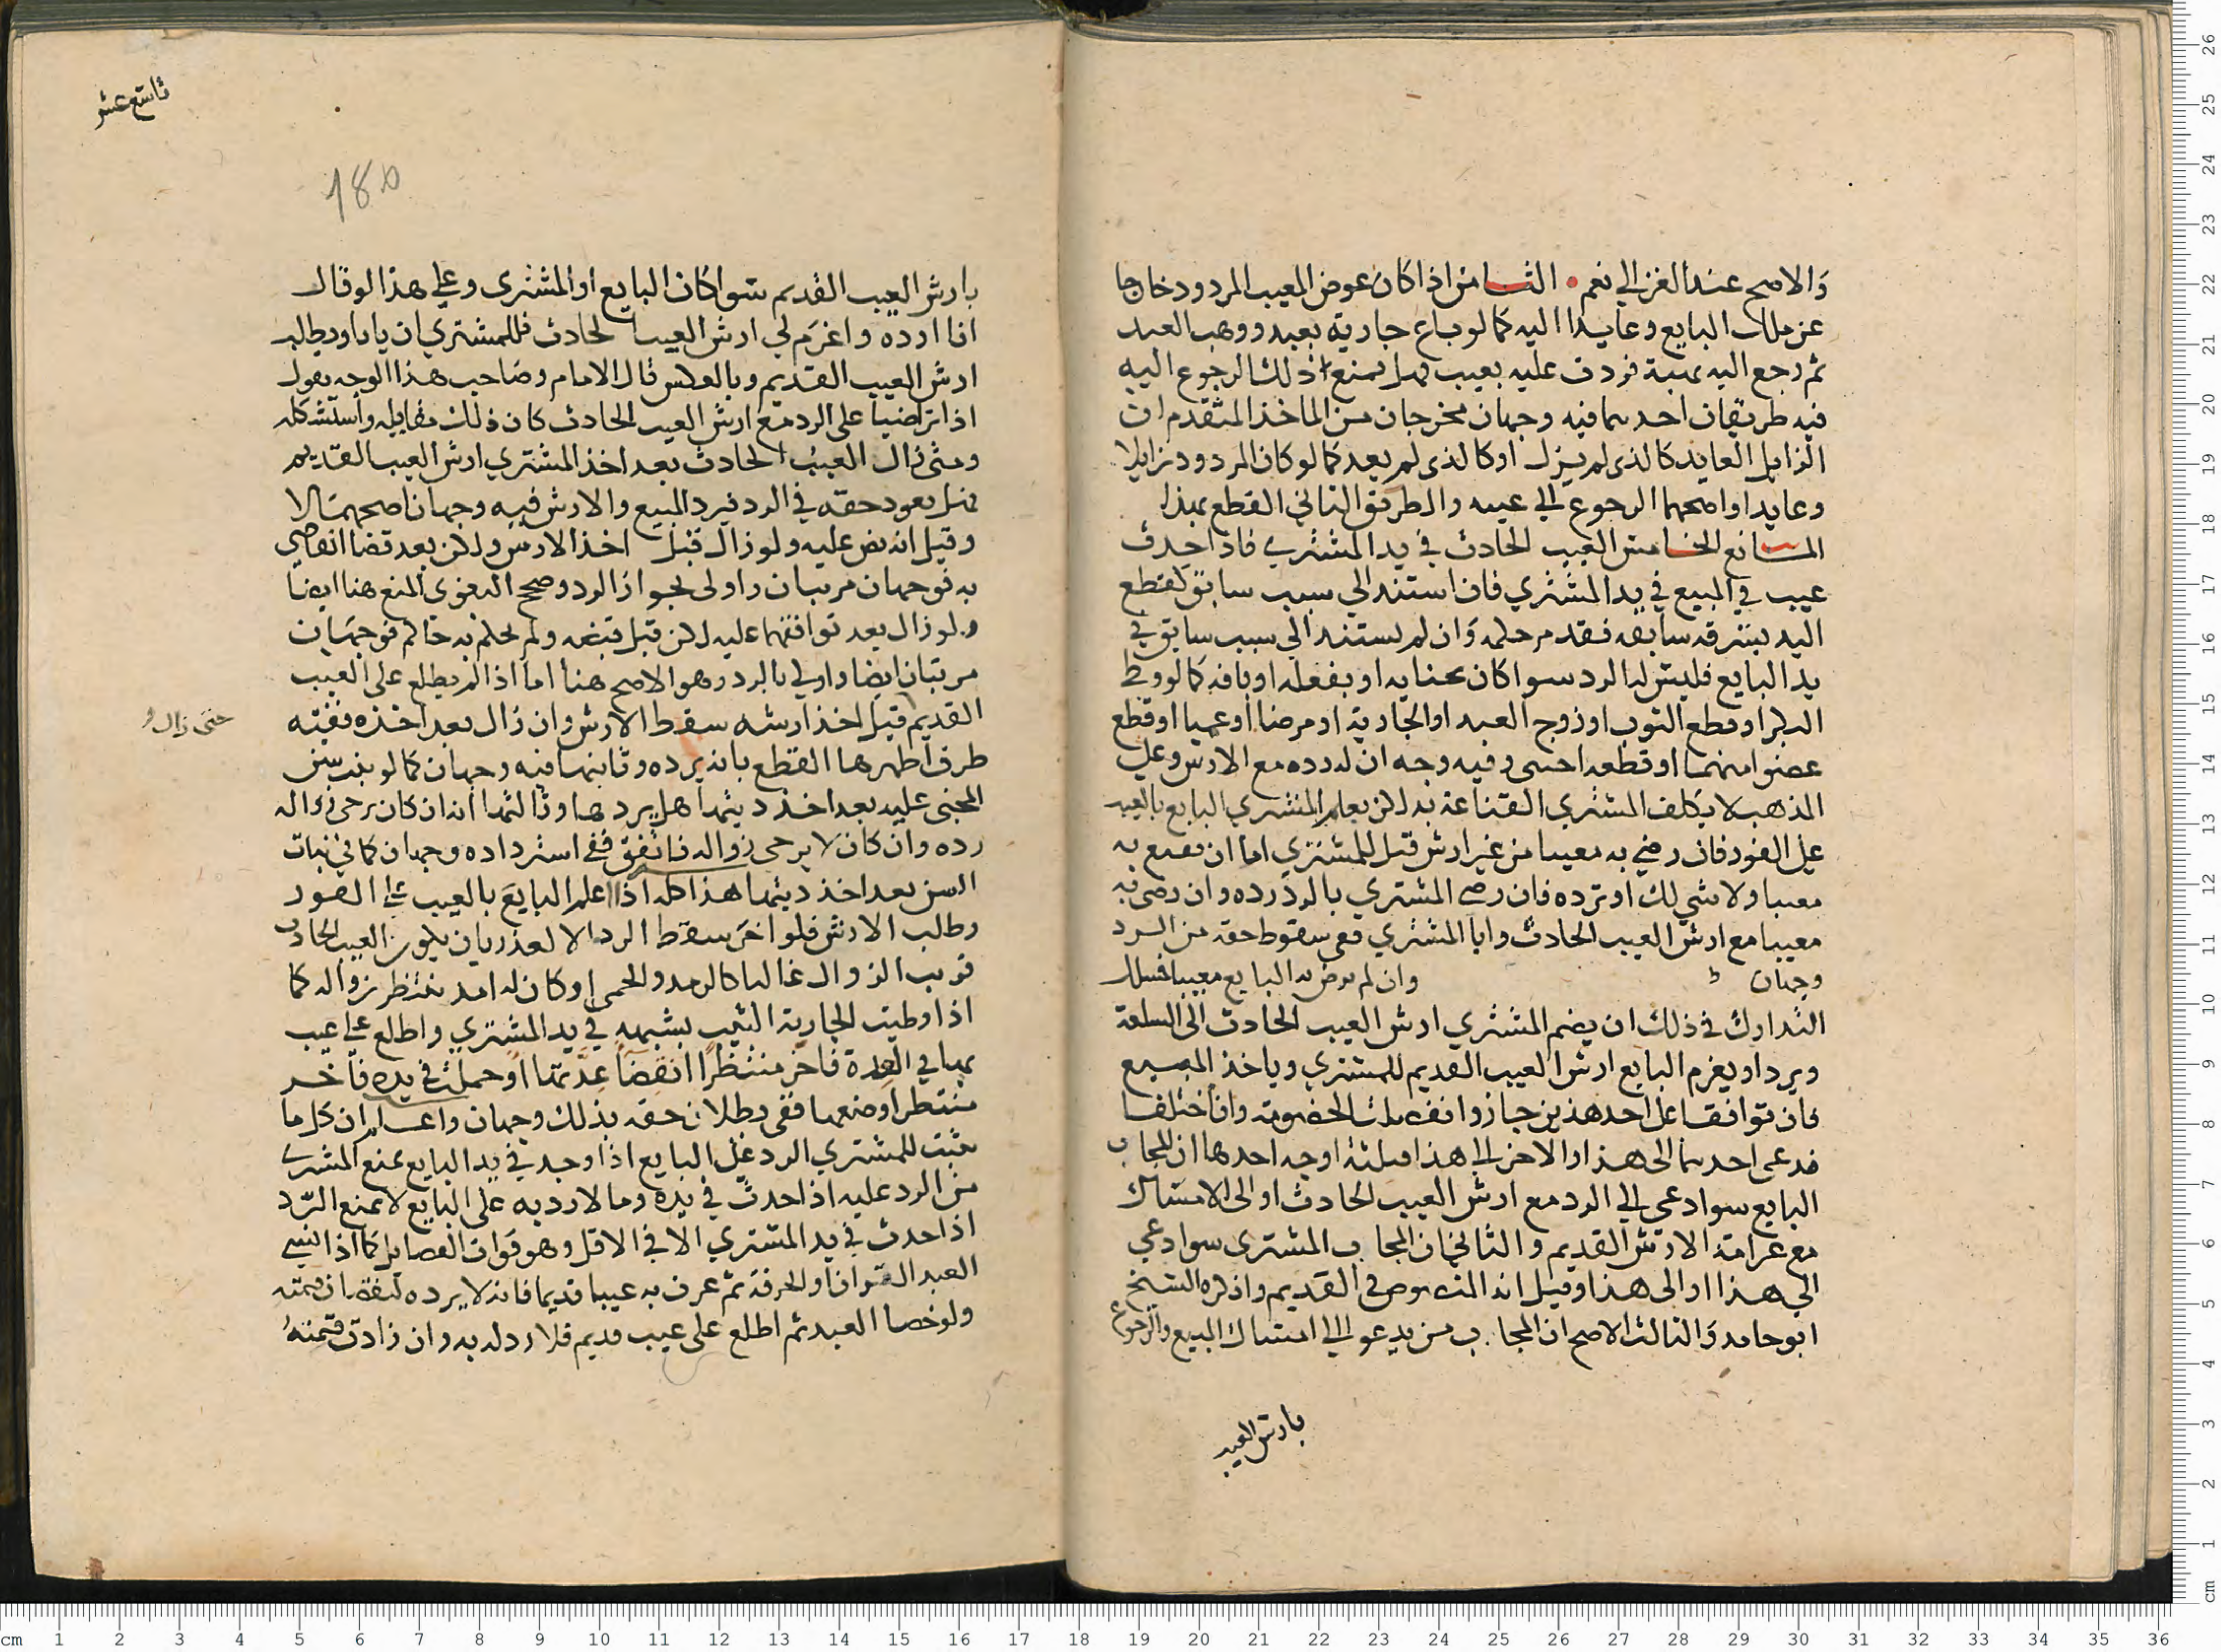 والاصح عند الغزالي نعم • الثامن اذا كان عوض المعيب المردود خارجا
عن ملك البايع وعايدا اليه كما لو باع جارية بعبد ووهب العبد
ثم رجع اليه بهبة فردت عليه بعيب فهل يمنع ذلك الرجوع اليه
فيه طريقان احدهما فيه وجهان مخرجان من الماخذ المتقدم ان
الزايل العايد كالذي لم يزل او كالذي لم يعد كما لو كان المردود زايلا
وعايدا واصحهما الرجوع الي عينه والطريق الثاني القطع بهذا
المانع الخامس العيب الحادث في يد المشتري فاذا حدث
عيب في المبيع في يد المشتري فان استند الي سبب سابق كقطع
اليد بسرقه سابقه فقد مر حكمه وان لم يستند الي سبب سابق في
يد البايع فليس له الرد سوا كان بجنايه او بفعله او بافه كما لو وطي
البكر او قطع الثوب او زوج العبد او الجارية او مرضا او عميا او قطع
عضوا منهما او قطعه اجنبي وفيه وجه ان له رده مع الارش وعلي
المذهب لا يكلف المشتري القناعة به لكن يعلم المشتري البايع بالعيب
علي الفور فان رضي به معيبا من غير ارش قيل للمشتري اما ان تقنع به
معيبا ولا شي لك او ترده فان رضي المشتري بالرد رده وان رضي به
معيبا مع ارش العيب الحادث وابا المشتري ففي سقوط حقه من الرد
وجهان وان لم يرض به البايع معيبا فسبيل
التدارك في ذلك ان يضم المشتري ارش العيب الحادث الي السلعة
ويرد او يغرم البايع ارش العيب القديم للمشتري وياخذ المبيع
فان توافقا علي احد هذين جاز وانفصلت الخصومة وان اختلفا
فدعي احدهما الي هذا والاخر الي هذا فثلثة اوجه احدها ان المجاب
البايع سوا دعي الي الرد مع ارش العيب الحادث او الي الامساك
مع غرامة الارش القديم والثاني ان المجاب المشتري سوا دعي
الي هذا او الي هذا وقيل انه المنصوص في القديم واذكره الشيخ
ابو حامد والثالث الاصح ان المجاب من يدعو الي امساك المبيع والرجوع
بارش العيب
تاسع عشر
180
بارش العيب القديم سوا كان البايع او المشتري وعلي هذا لو قال
انا ارده واغرم لي ارش العيب الحادث فللمشتري ان يابا ويطالب
ارش العيب القديم وبالعكس قال الامام وصاحب هذا الوجه يقول
اذا تراضيا علي الرد مع ارش العيب الحادث كان ذلك مقابله واستشكله
ومتي زال العيب الحادث بعد اخذ المشتري ارش العيب القديم
فهل يعود حقه في الرد فيرد المبيع والارش فيه وجهان اصحهما لا
وقيل انه نص عليه ولو زال قبل اخذ الارش ولكن بعد قضا القاضي
به فوجهان مرتبان واولي بجواز الرد وصحح البغوي المنع هنا ايضا
ولو زال بعد توافقهما عليه لكن قبل قبضه ولم يحكم به حاكم فوجهان
مرتبان ايضا واولي بالرد وهو الاصح هنا اما اذا لم يطلع علي العيب
القديم قبل اخذ ارشه سقط الارش وان زال بعد اخذه ففيه
حتى زال و
طرق اظهرها القطع بانه يرده وثانيها فيه وجهان كما لو نبت سن
المجني عليه بعد اخذ ديتها هل يردها وثالثها انه ان كان يرجي زواله
رده وان كان لا يرجي زواله فاتفق ففي استرداده وجهان كما في نبات
السن بعد اخذ ديتها هذا كله اذا اعلم البايع بالعيب علي الفور
وطالب الارش فلو اخر سقط الرد الا لعذر بان يكون العيب الحادث
قريب الزوال غالبا كالرمد والحمي او كان له امد ينتظر زواله كما
اذا وطيت الجارية الثيب بشبهه في يد المشتري واطلع علي عيب
بها في العدة فاخر منتظرا انقضا عدتها او حملت في يده فاخر
منتظرا وضعها ففي بطلان حقه بذلك وجهان واعلم ان كل ما
يثبت للمشتري الرد علي البايع اذا وجد في يد البايع يمنع المشتري
من الرد عليه اذا حدث في يده وما لا رد به علي البايع لا يمنع الرد
اذا حدث في يد المشتري الا في الاقل وهو فوات الفضايل كما اذا انسي
العبد القران او الحرفة ثم عرف به عيبا قديما فانه لا يرده لنقصان قيمته
ولو خصا العبد ثم اطلع علي عيب قديم فلا رد له به وان زادت قيمته